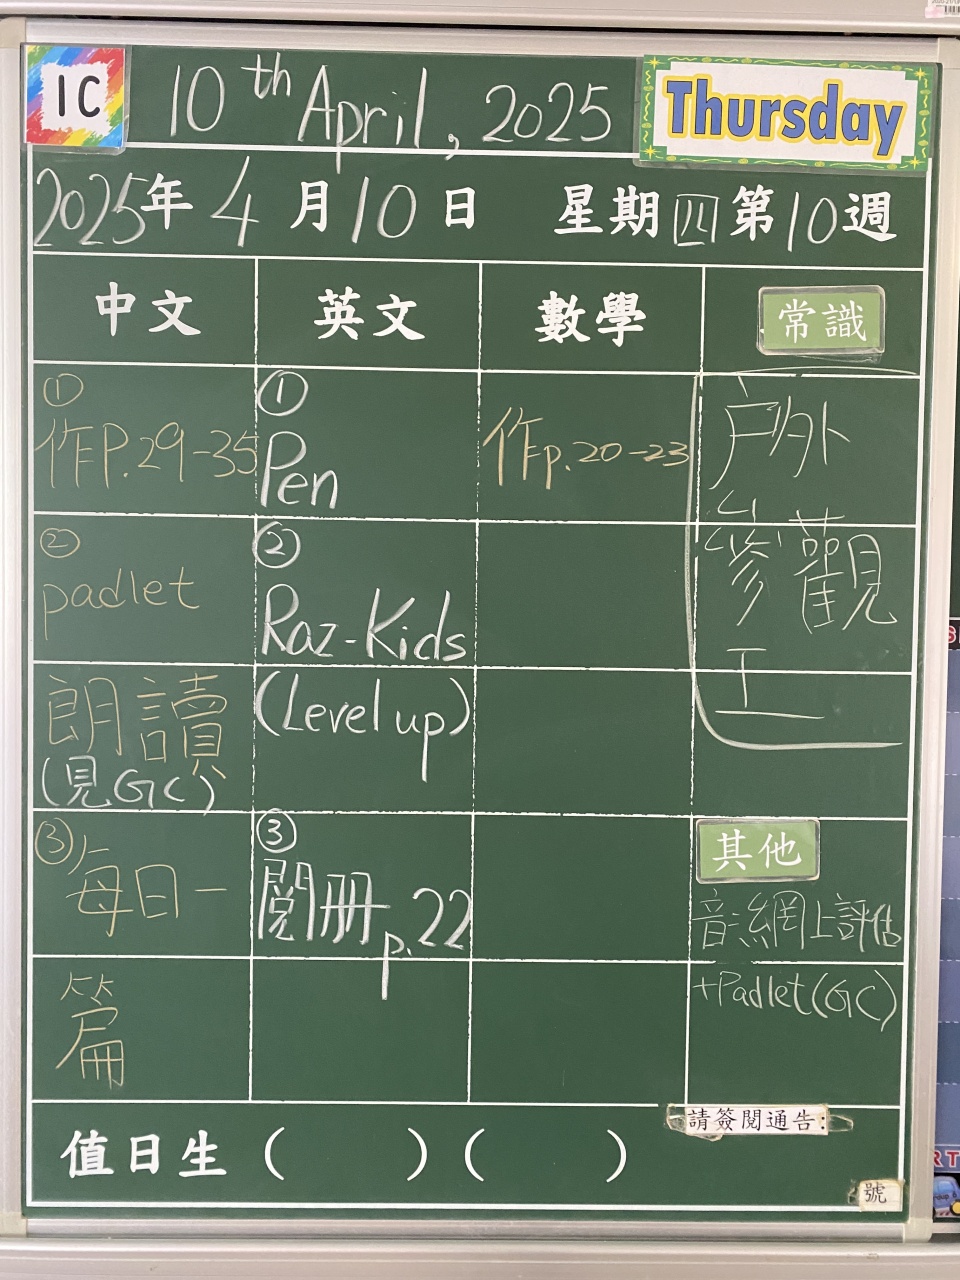 1C
10th April, 2025
Thursday
2025年4月10日 星期四第10週
中文 英文 數學 常識
①
作P.29-35
②
padlet
朗讀
(見GC)
③每日一
篇
①
Pen
②
Raz-Kids
(Level up)
③
閱冊p.22
作p.20-23
戶外
參觀
工
其他
音:網上評估
+Padlet(GC)
請簽閱通告:
值日生 ( ) ( )
號